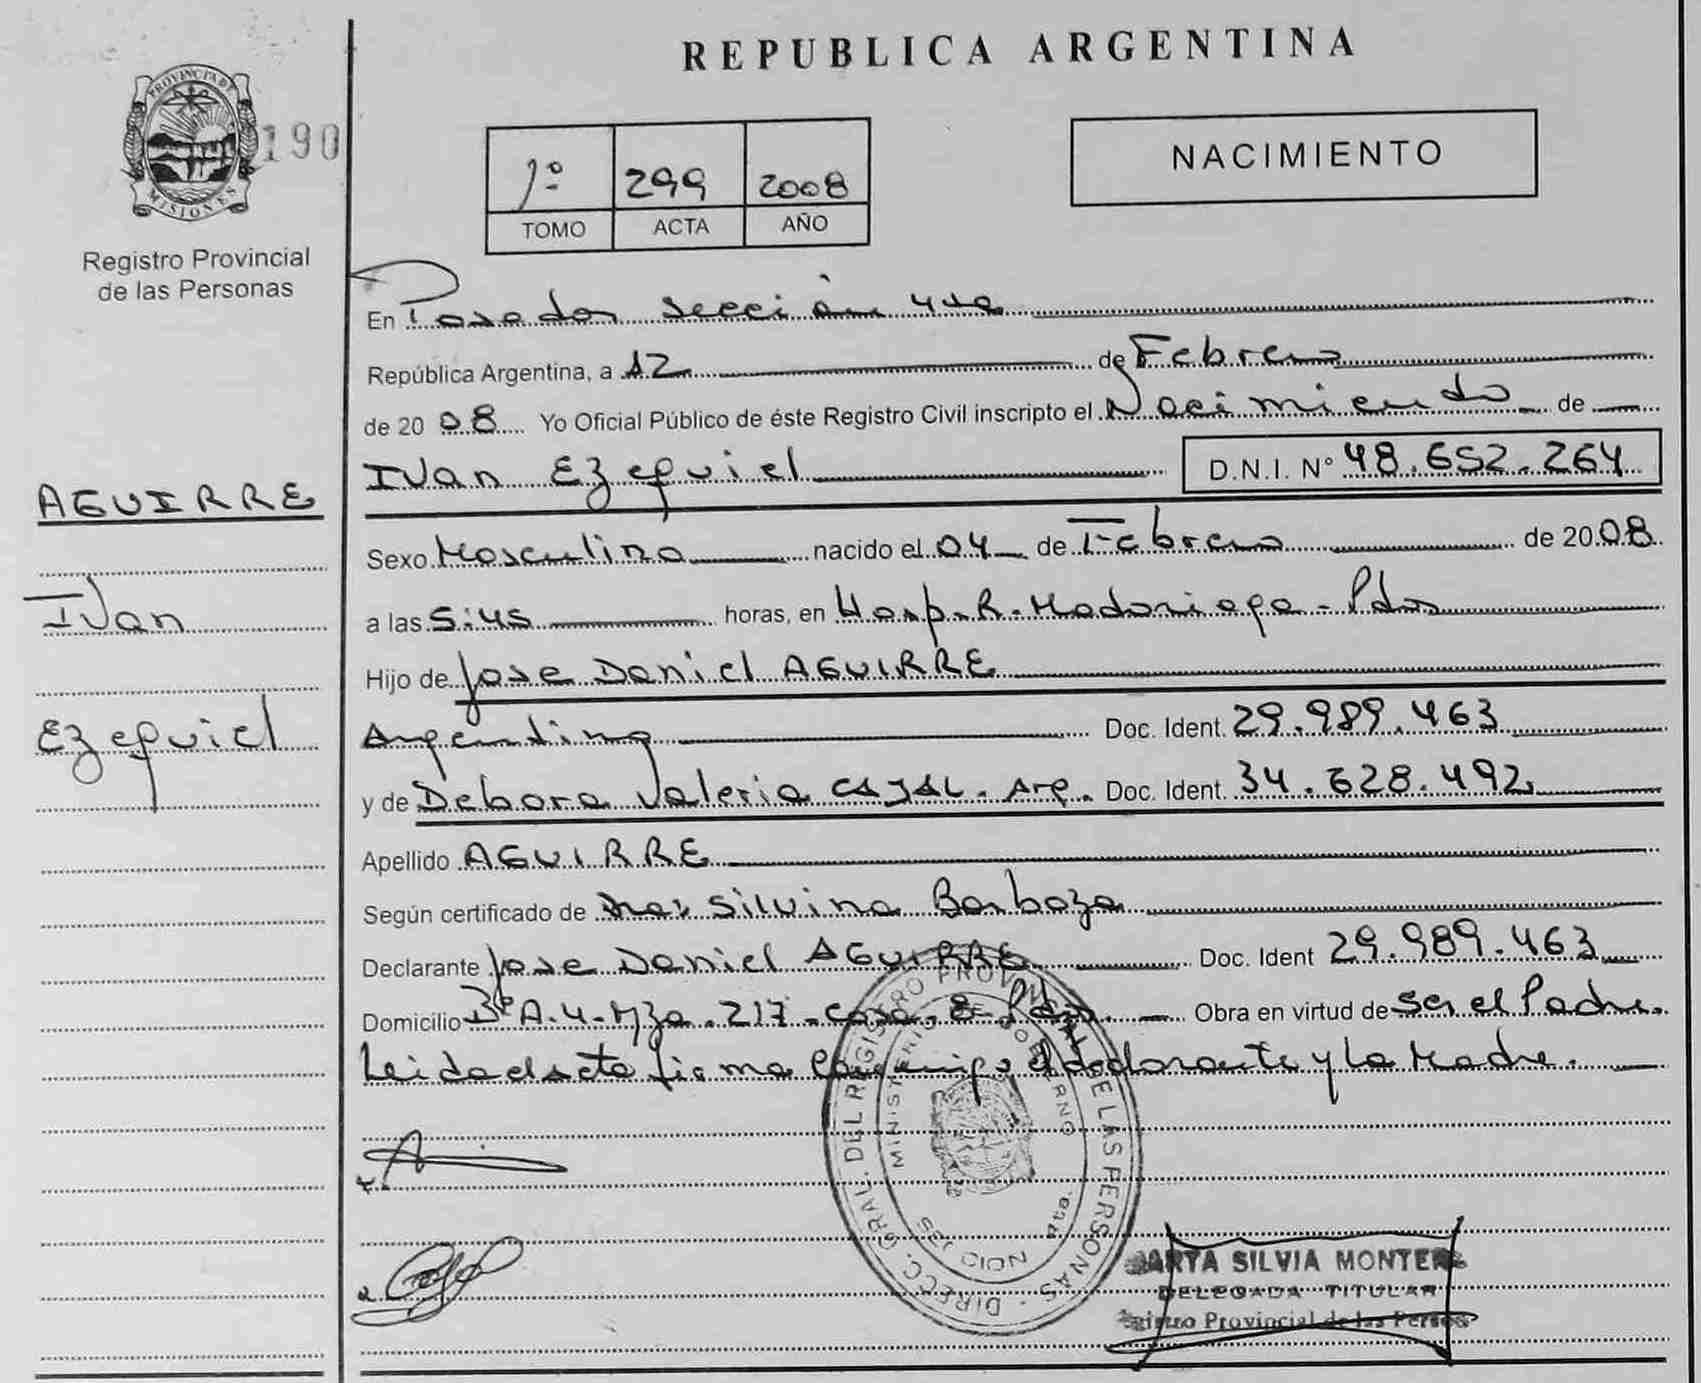 REPUBLICA ARGENTINA
PROVINCIA DE
MISIONES
190
Registro Provincial
de las Personas
1º 299 2008
TOMO ACTA AÑO
NACIMIENTO
En Posadas sección 4ta
República Argentina, a 12 de Febrero
de 2008 Yo Oficial Público de éste Registro Civil inscripto el Nacimiento de
Ivan Ezequiel D.N.I. Nº 48.652.264
AGUIRRE
Ivan
Ezequiel
Sexo Masculino nacido el 04 de Febrero de 2008
a las 5:45 horas, en Hosp. R. Madariaga - Pdas
Hijo de Jose Daniel AGUIRRE
Argentino Doc. Ident. 29.989.463
y de Debora Valeria CAJAL. Arg. Doc. Ident. 34.628.492
Apellido AGUIRRE
Según certificado de Silvina Barboza
Declarante Jose Daniel AGUIRRE Doc. Ident 29.989.463
Domicilio Bº A.4-Mza.217-casa.8-Pdas. Obra en virtud de ser el Padre.
Leida el acta firma conmigo el declarante y la Madre.
DIRECC. GRAL. DEL REGISTRO PROVINCIAL DE LAS PERSONAS
MINISTERIO DE GOBIERNO
ARTA SILVIA MONTER
DELEGADA TITULAR
Registro Provincial de las Personas